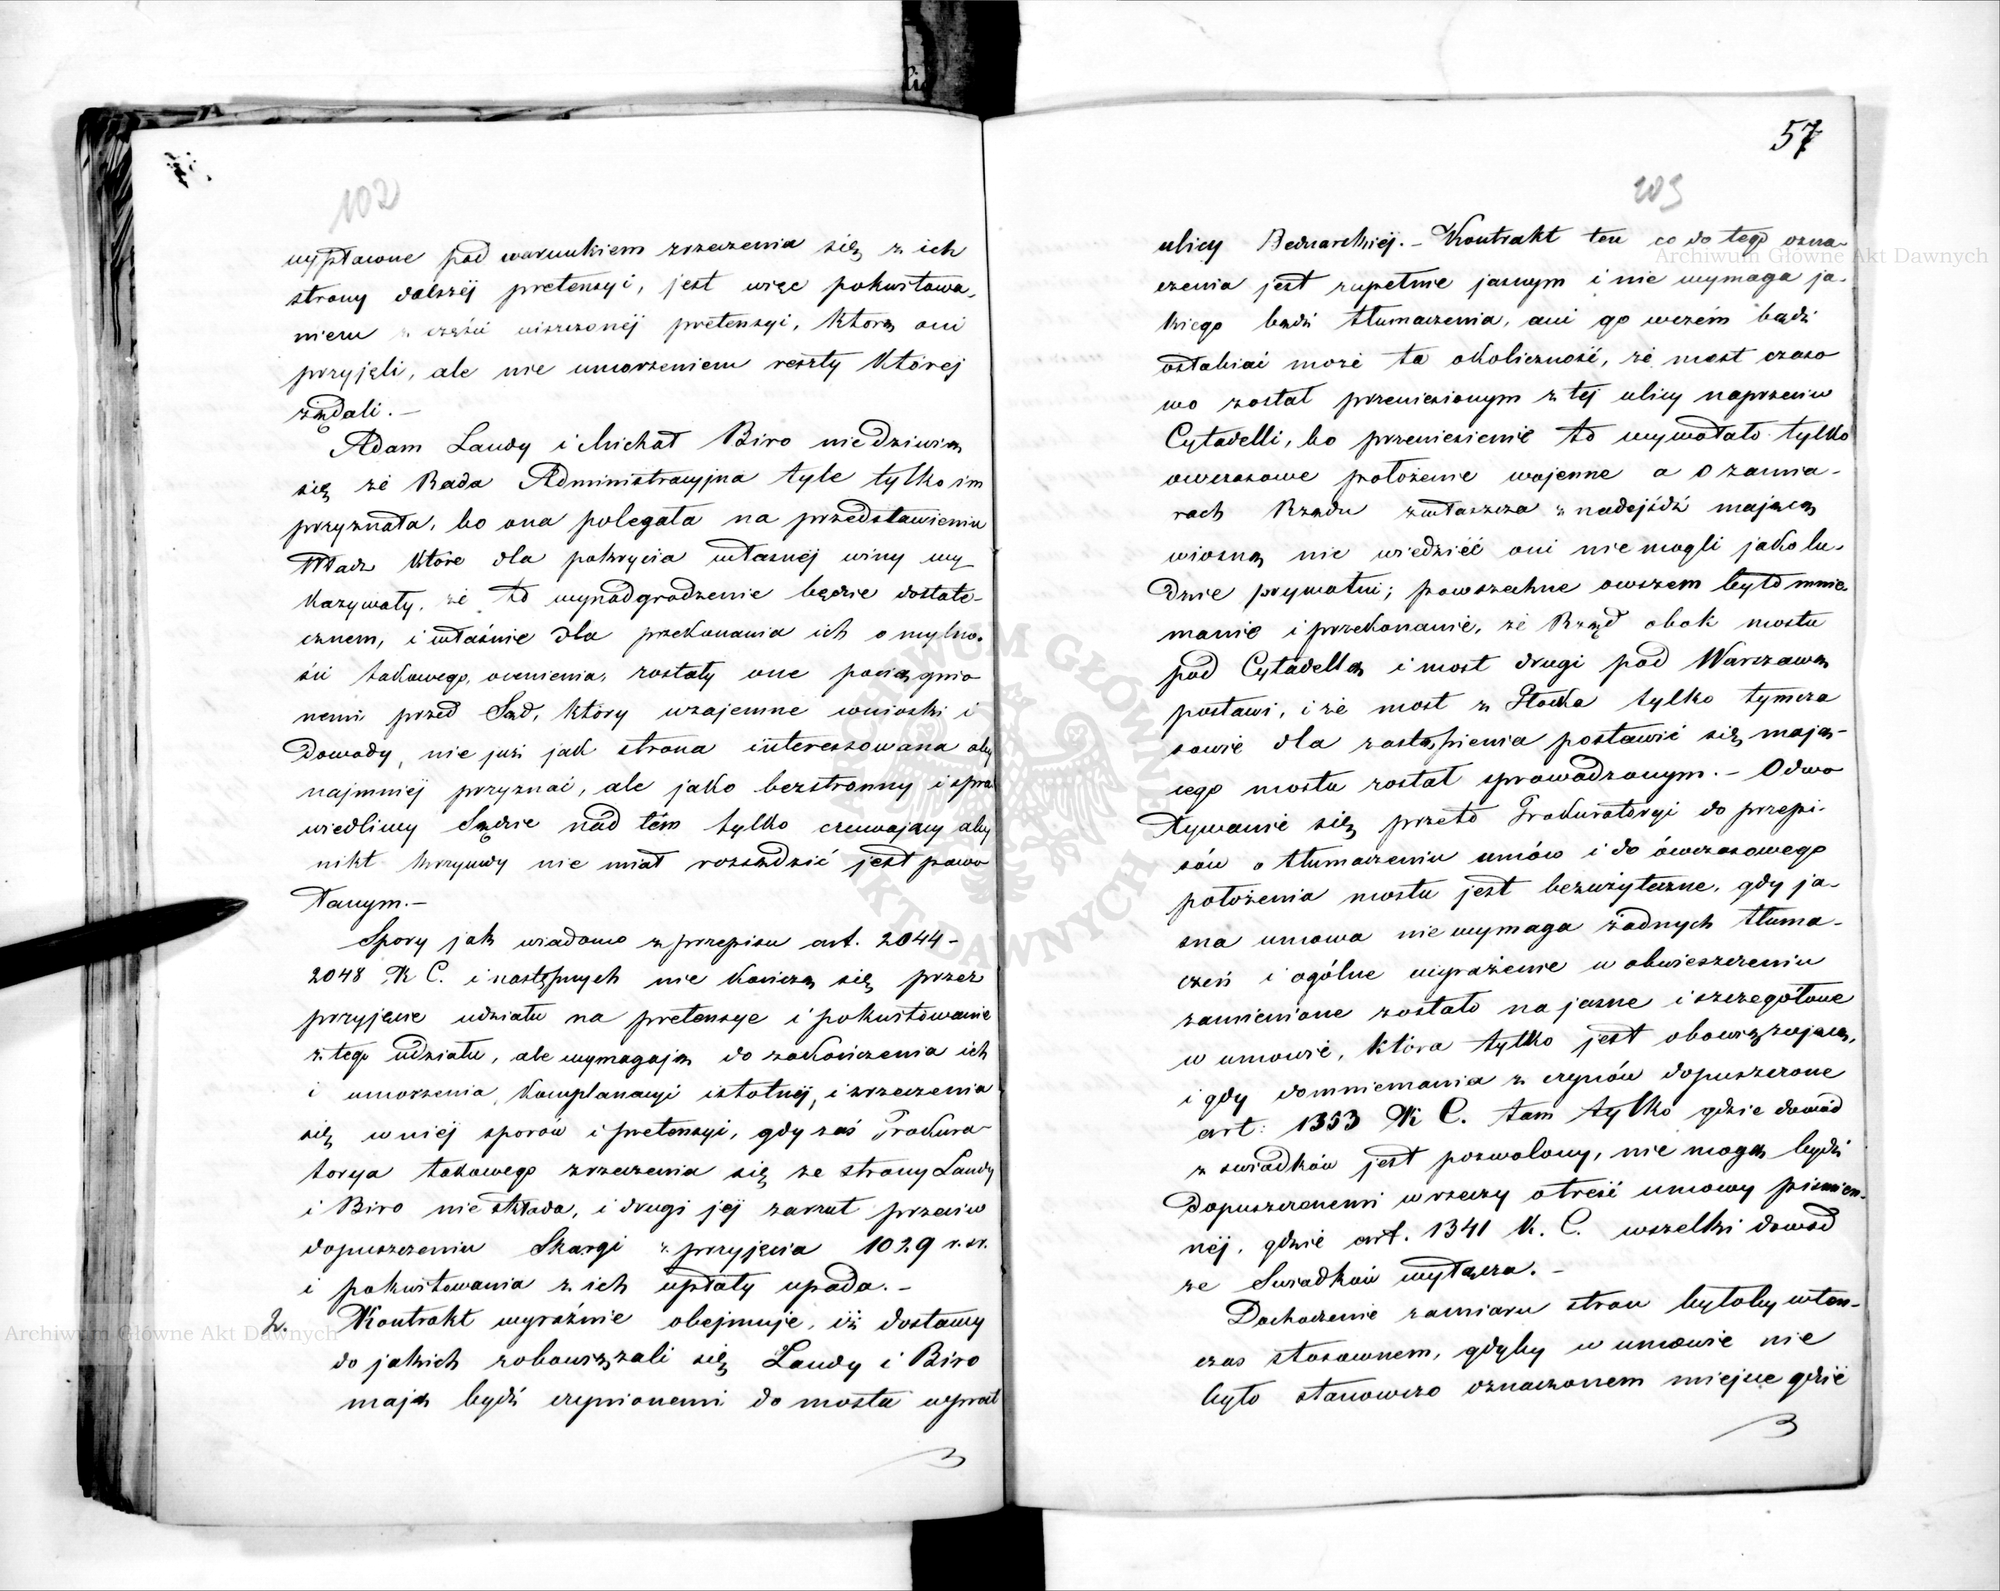 102
wypłacone pod warunkiem zrzeczenia się z ich
strony dalszéj pretensyi, jest więc pokwitowa-
niem z części uiszczonéj pretensyi, którą oni
przyjęli, ale nie umorzeniem reszty której
żądali.—
Adam Landy i Michał Biro nie dziwią
się że Rada Administracyjna tyle tylko im
przyznała, bo ona polegała na przedstawieniu
Władz które dla pokrycia własnéj winy wy
kazywały, że to wynadgrodzenie będzie dostate-
cznem, i właśnie dla przekonania ich o mylno-
ści takowego, ocenienia, zostały one pociągnio
nemi przed Sąd, który wzajemne wnioski i
dowody, nie już jak strona interessowana aby
najmniéj przyznać, ale jako bezstronny i spra
wiedliwy Sędzie nad tém tylko czuwający aby
nikt krzywdy nie miał rozsądzić jest powo
łanym.—
Spory jak wiadomo z przepisu art. 2044-
2048 K C. i następnych nie kończą się przez
przyjęcie udziału na pretensye i pokwitowanie
z tego udziału, ale wymagają do zakończenia ich
i umorzenia, komplanacyi istotnéj, i zrzeczenia
się w niéj sporów i pretensyi, gdy zaś Prokura-
torya takowego zrzeczenia się ze strony Landy
i Biro nie składa, i drugi jéj zarzut przeciw
dopuszczeniu Skargi z przyjęcia 1029 r. sr.
i pokwitowania z ich upłaty upada.—
2. Kontrakt wyraźnie obejmuje, iż dostawy
do jakich zobowiązali się Landy i Biro
mają bydź czynionemi do mostu wprost
57
103
ulicy Bednarskiéj.— Kontrakt ten co do tego ozna-
czenia jest zupełnie jasnym i nie wymaga ja-
kiego bądź tłumaczenia, ani go wczém bądź
osłabiać może ta okoliczność, że most czaso
wo został przeniesionym z téj ulicy naprzeciw
Cytadelli, bo przeniesienie to wywołało tylko
owczasowe położenie wojenne a o zamia-
rach Rządu zwłaszcza z nadejśdź mającą
wiosną nie wiedzieć oni nie mogli jako lu-
dzie prywatni; powszechne owszem było mnie-
manie i przekonanie, że Rząd obok mostu
pod Cytadellą i most drugi pod Warszawą
postawi, i że most z Płocka tylko tymcza
sowie dla zastąpienia postawić się mają-
cego mostu został sprowadzonym.— Odwo
ływanie się przeto Prokuratoryi do przepi-
sów o tłumaczeniu umów i do ówczasowego
położenia mostu jest bezużyteczne, gdy ja-
sna umowa nie wymaga żadnych tłuma-
czeń i ogólne wyrażenie w obwieszczeniu
zamienione zostało na jasne i szczegółowe
w umowie, która tylko jest obowiązującą,
i gdy domniemania z czynów dopuszczone
art: 1353 K C. tam tylko gdzie dowód
z świadków jest pozwolony, nie mogą bydź
dopuszczonemi w rzeczy otreść umowy pismien-
néj, gdzie art. 1341 K. C. wszelki dowód
ze Swiadków wyłącza.—
Dochodzenie zamiaru stron byłoby wten-
czas stosownem, gdyby w umowie nie
było stanowczo oznaczonem miejsce gdzie